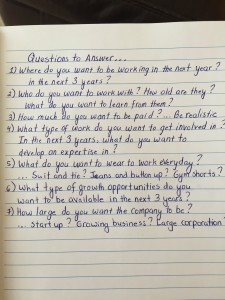 Questions to Answer...
1) Where do you want to be working in the next year?
in the next 3 years?
2) Who do you want to work with? How old are they?
What do you want to learn from them?
3) How much do you want to be paid?... Be realistic
4) What type of work do you want to get involved in?
In the next 3 years, what do you want to
develop an expertise in?
5) What do you want to wear to work everyday?
... Suit and tie? Jeans and button up? Gym shorts?
6) What type of growth opportunities do you
want to be available in the next 3 years?
7) How large do you want the company to be?
... start up? Growing business? Large corporation?